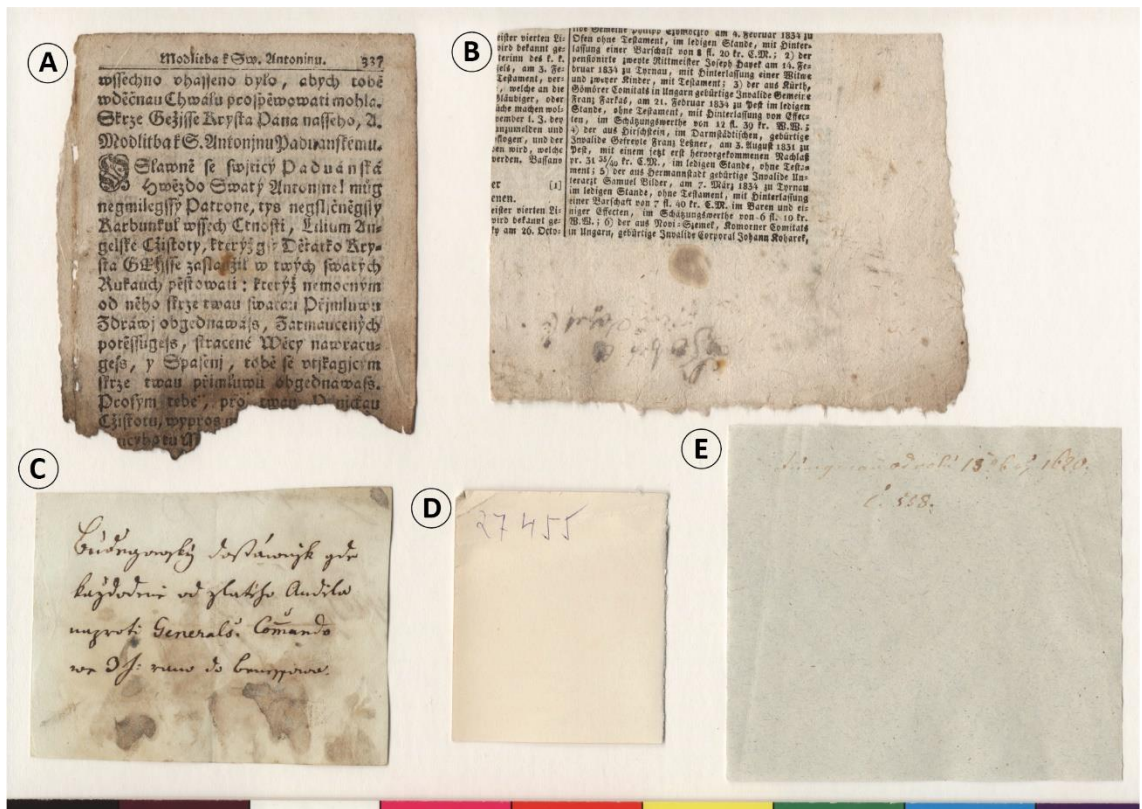 A
Modlitba k Sw. Antoninu. 337
wssechno vhasseno bylo, abych tobě
wděčnau Chwálu prospěwowati mohla.
Skrze Gežjsse Krysta Pana nasseho, A.
Modlitba k S. Antonjnu Paduanskému.
Slawně se swjtjcý Paduánská
Hwězdo Swatý Antonjne! můg
negmilegssý Patrone, tys
Karbunkul wssech Ctnostj, Lilium An-
gelské Cžistoty, kterýž gsy Děťátko Kry-
sta GEžjsse zaslaužil w twých swatých
Rukauch pěstowati: kterýž nemocným
od něho skrze twau swatau Přjmluwu
Zdrawj obgednáwáss, Zarmaucených
potěssugess, stracené Wěcy nawracu-
gess, y Spasenj, tobě se vtjkagjcým
skrze twau přjmluwu obgednáwass.
Prosým tebe, pro twau
Cžistotu, wypros
B
eister vierten Li-
wird bekannt ge-
terinn des k. k.
sels, am 3. Fe-
Testament, ver-
, welche an die
bländiger, oder
üche machen wol-
vember l. J. bey
anzumelden und
pflogen, und der
en wird, welche
werden. Bassano
er [1]
enen.
eister vierten Li-
wird bekannt ge-
ky am 26. Octo-
lide Gemeine Philipp am 4. Februar 1834 zu
Ofen ohne Testament, im ledigen Stande, mit Hinter-
lassung einer Barschaft von 8 fl. 20 kr. C.M.; 2) der
pensionirte zweyte Rittmeister Joseph Hayek am 14. Fe-
bruar 1834 zu Tyrnau, mit Hinterlassung einer Witwe
und zweyer Kinder, mit Testament; 3) der aus Kürth,
Gömörer Comitats in Ungarn gebürtige Invalide Gemeine
Franz Farkas, am 21. Februar 1834 zu Pest im ledigen
Stande, ohne Testament, mit Hinterlassung von Effec-
ten, im Schätzungswerthe von 12 fl. 39 kr. W.W.;
4) der aus Hirschstein, im Darmstädtischen, gebürtige
Invalide Gefreyte Franz Leßner, am 3. August 1831 zu
Pest, mit einem jetzt erst hervorgekommenen Nachlaß
pr. 31 35/40 kr. C.M., im ledigen Stande, ohne Testa-
ment; 5) der aus Hermannstadt gebürtige Invalide Un-
terarzt Samuel Bilder, am 7. März 1834 zu Tyrnau
im ledigen Stande, ohne Testament, mit Hinterlassung
einer Barschaft von 7 fl. 40 kr. C.M. im Baren und ei-
niger Effecten, im Schätzungswerthe von 6 fl. 10 kr.
W.W.; 6) der aus Novi-Szemek, Komorner Comitats
in Ungarn, gebürtige Invalide Corporal Johann Koharek,
C
Budegowský dostáwnjk gde
každodeně od zlatého Anděla
naproti Generals. Comando
we 3 h: rano do Benessowa.
D
27455
E
od roku 15 1620.
č. 558.